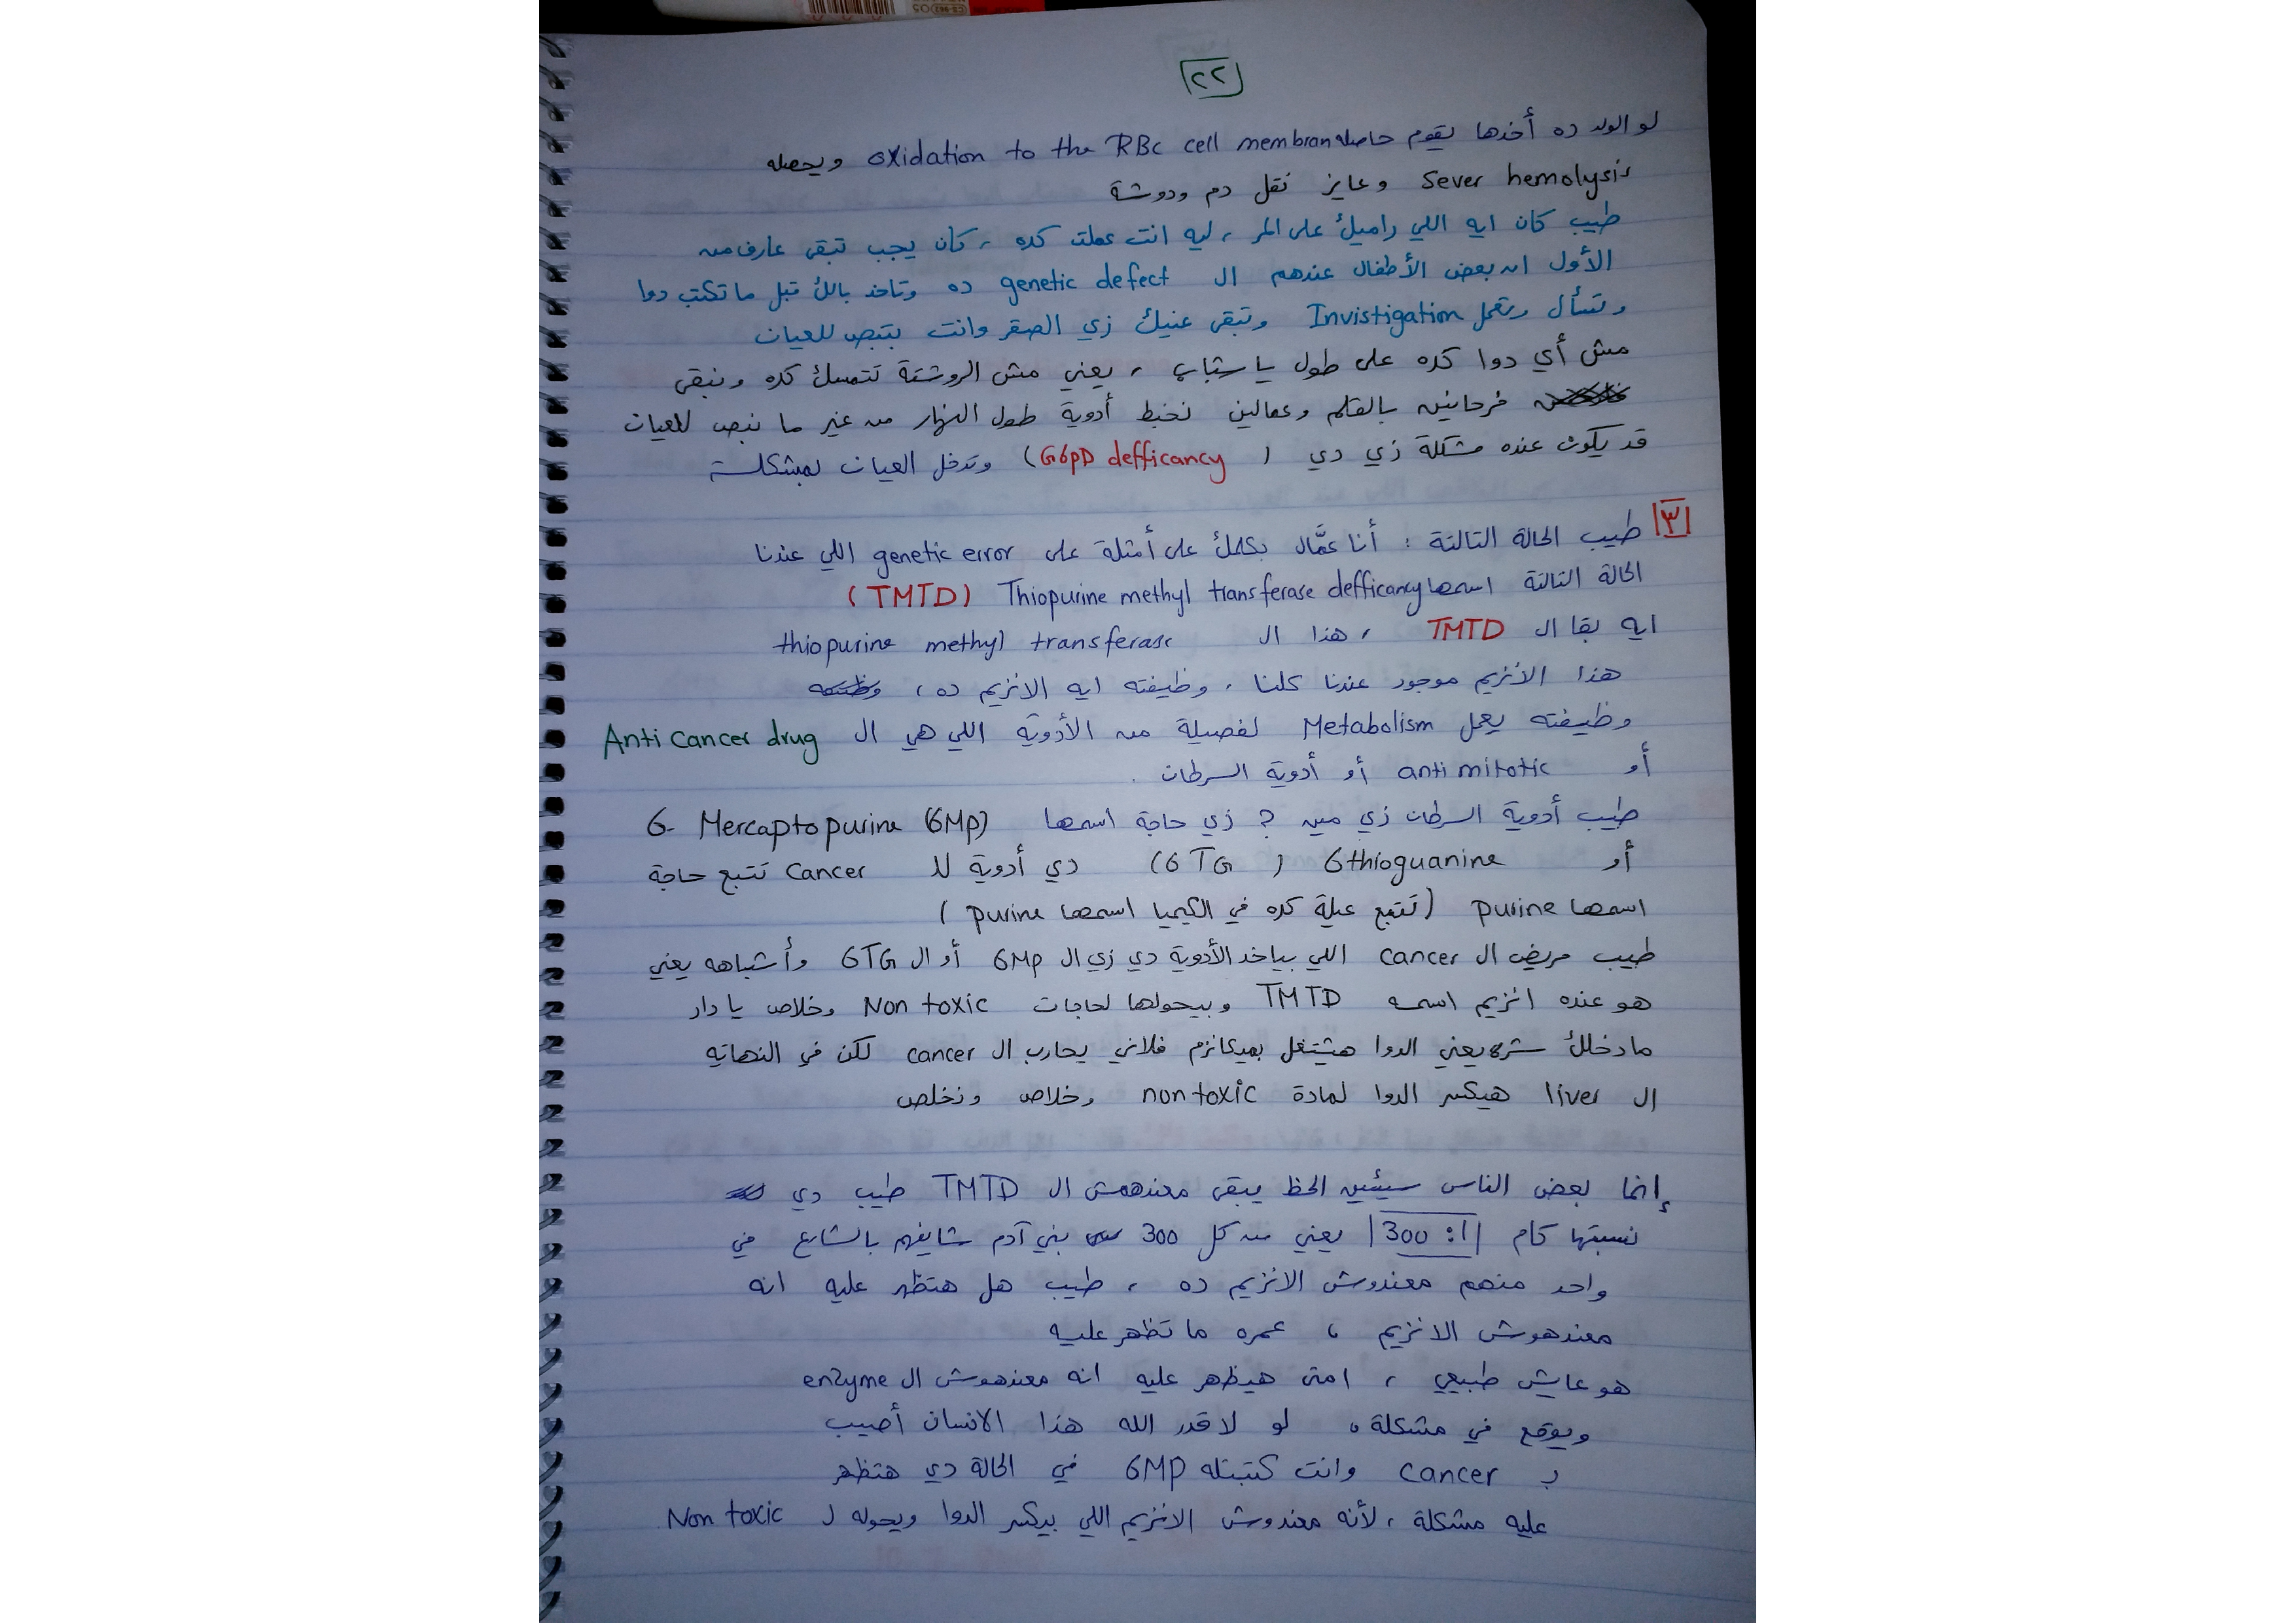 ٢٢
لو الولد ده أخدها يقوم حاصله oxidation to the RBc cell membran ويحصله
Sever hemolysis وعايز نقل دم ودوشة
طيب كان ايه اللي راميك على المر ، ليه انت عملت كده ، كان يجب تبقى عارف من
الأول ان بعض الأطفال عندهم ال genetic defect ده وتاخد بالك قبل ما تكتب دوا
وتسأل وتعمل Invistigation وتبقى عنيك زي الصقر وانت بتبص للعيان
مش أي دوا كده على طول يا شباب ، يعني مش الروشتة تتمسك كده ونبقى
فرحانين بالقلم وعمالين نخبط أدوية طول النهار من غير ما نبص للعيان
قد يكون عنده مشكلة زي دي ( G6pD defficancy ) وتدخل العيان لمشكلة
٣ طيب الحالة التالتة : أنا عمَّال بكلمك على أمثلة على genetic error اللي عندنا
الحالة التالتة اسمها Thiopurine methyl transferase defficancy (TMTD)
ايه بقا ال TMTD ، هذا ال thiopurine methyl transferase
هذا الأنزيم موجود عندنا كلنا ، وظيفته ايه الانزيم ده ،
وظيفته يعمل Metabolism لفصيلة من الأدوية اللي هي ال Anti cancer drug
أو anti mitotic أو أدوية السرطان .
طيب أدوية السرطان زي مين ? زي حاجة اسمها 6- Mercaptopurine (6Mp)
أو 6thioguanine (6TG) دي أدوية لل cancer تتبع حاجة
اسمها purine (تتبع عيلة كده في الكيميا اسمها purine )
طيب مريض ال cancer اللي بياخد الأدوية دي زي ال 6Mp أو ال 6TG وأشباهه يعني
هو عنده انزيم اسمه TMTD وبيحولها لحاجات Non toxic وخلاص يا دار
ما دخلك شر يعني الدوا هيشتغل بميكانزم فلاني يحارب ال cancer لكن في النهاية
ال liver هيكسر الدوا لمادة non toxic وخلاص ونخلص
إنما بعض الناس سيئين الحظ يبقى معندهمش ال TMTD طيب دي
نسبتها كام 300 :1 يعني من كل 300 بني آدم شايفهم بالشارع في
واحد منهم معندوش الانزيم ده ، طيب هل هتظهر عليه انه
معندهوش الانزيم ، عمره ما تظهر عليه
هو عايش طبيعي ، امتى هيظهر عليه انه معندهوش ال enzyme
ويوقع في مشكلة ، لو لا قدر الله هذا الانسان أصيب
بـ cancer وانت كتبتله 6MP في الحالة دي هتظهر
عليه مشكلة ، لأنه معندوش الانزيم اللي بيكسر الدوا ويحوله لـ Non toxic